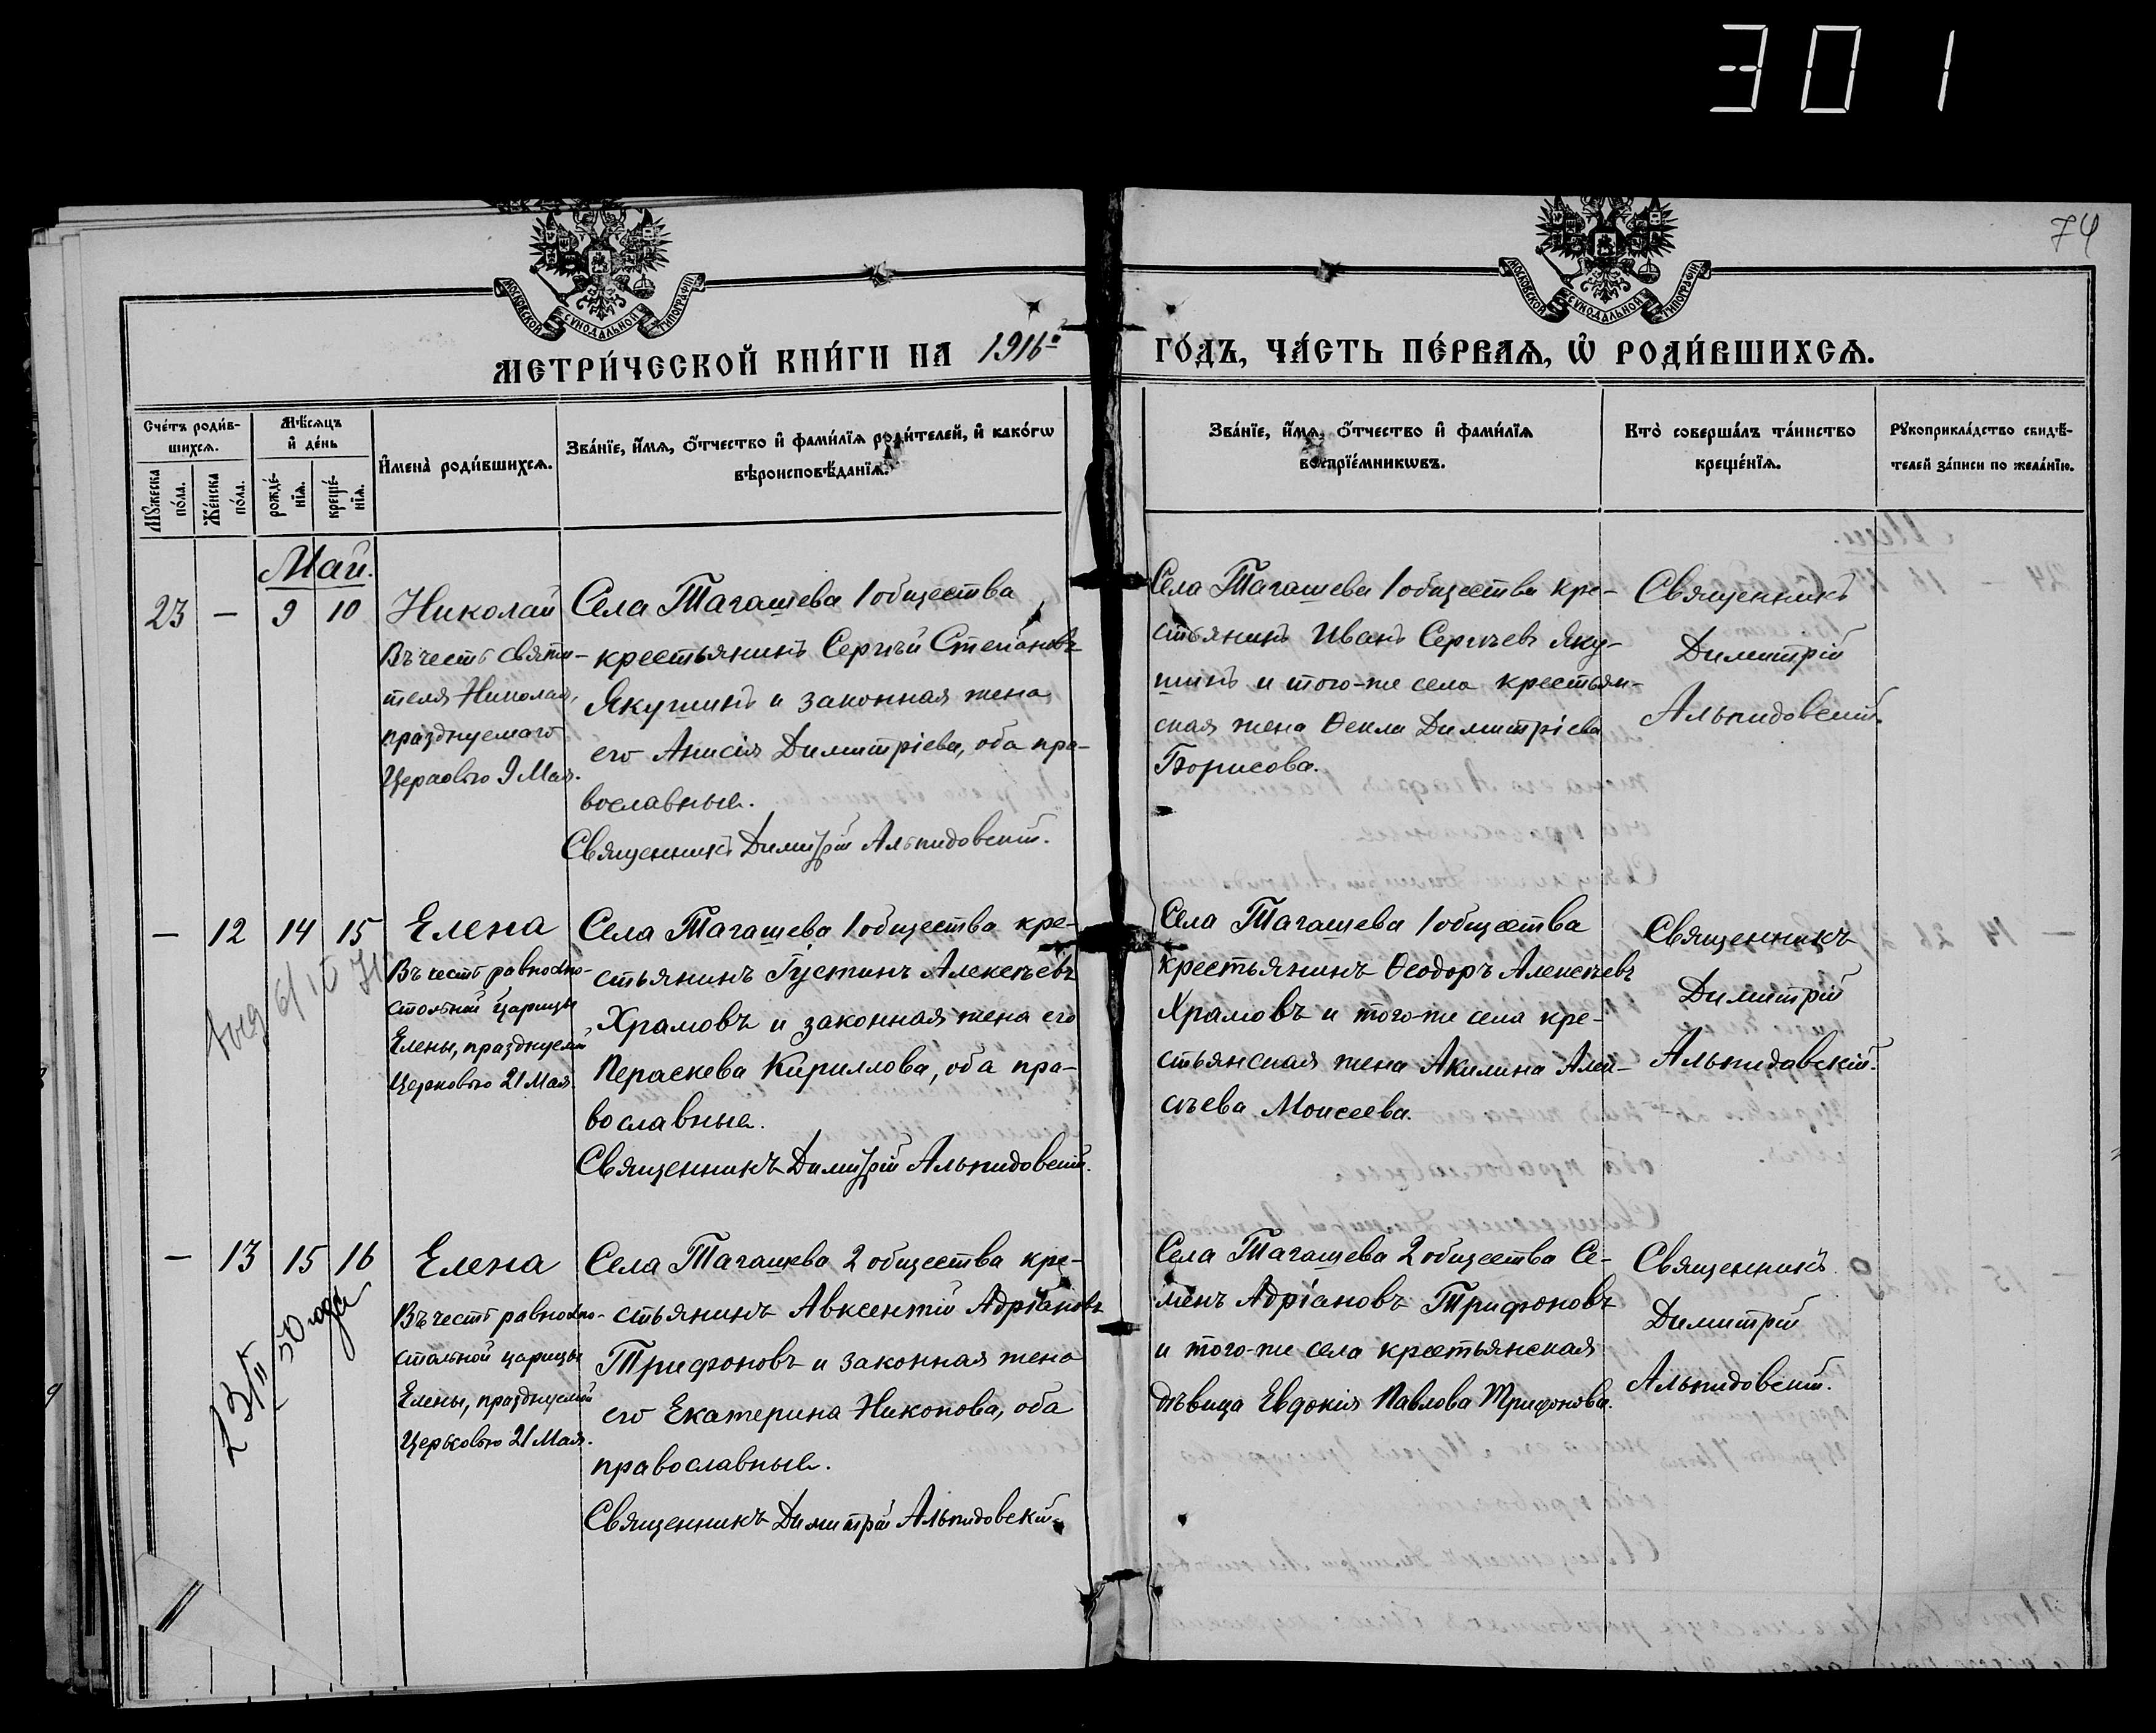 301
74
МОСКОВСКОЙ СѴНОДАЛЬНОЙ ТИПОГРАФІИ
МОСКОВСКОЙ СѴНОДАЛЬНОЙ ТИПОГРАФІИ
МЕТРИ́ЧЕСКОЙ КНИ́ГИ НА 1916й ГО́ДЪ, ЧА́СТЬ ПЕ́РВАѦ, Ѡ҆ РОДИ́ВШИХСѦ.
Сче́тъ роди́в-
шихсѧ.
Мꙋ́жеска
по́ла.
Же́нска
по́ла.
Мѣ́сѧцъ
и҆ де́нь
рожде́-
нїѧ.
креще́-
нїѧ.
И҆мена̀ роди́вшихсѧ.
Зва́нїе, и҆́мѧ, ѻ҆́тчество и҆ фами́лїѧ роди́телей, и҆ како́гѡ
вѣроисповѣ́данїѧ.
Зва́нїе, и҆́мѧ, ѻ҆́тчество и҆ фами́лїѧ
воспрїе́мникѡвъ.
Кто̀ соверша́лъ та́инство
креще́нїѧ.
Рꙋкоприкла́дство свидѣ́-
телей за́писи по жела́нїю.
Май.
23 — 9 10
Николай
Въ честь святи-
теля Николая,
празднуемаго
Церковью 9 Мая.
Села Тагашева 1 общества
крестьянинъ Сергѣй Степановъ
Якушинъ и законная жена
его Анисія Димитріева, оба пра-
вославные.
Священникъ Димитрій Альпидовскій.
Села Тагашева 1 общества кре-
стьянинъ Иванъ Сергѣевъ Яку-
шинъ и того-же села крестьян-
ская жена Ѳекла Димитріева
Борисова.
Священникъ
Димитрій
Альпидовскій.
— 12 14 15
Елена
Въ честь равноапо-
стольной царицы
Елены, празднуемой
Церковью 21 Мая.
Села Тагашева 1 общества кре-
стьянинъ Іустинъ Алексѣевъ
Храмовъ и законная жена его
Параскева Кириллова, оба пра-
вославные.
Священникъ Димитрій Альпидовскій.
Села Тагашева 1 общества
крестьянинъ Ѳеодоръ Алексѣевъ
Храмовъ и того-же села кре-
стьянская жена Акилина Алек-
сѣева Моисеева.
Священникъ
Димитрій
Альпидовскій.
— 13 15 16
23/II 50 года
Елена
Въ честь равноапо-
стольной царицы
Елены, празднуемой
Церковью 21 Мая.
Села Тагашева 2 общества кре-
стьянинъ Авксентій Адріановъ
Трифоновъ и законная жена
его Екатерина Никонова, оба
православные.
Священникъ Димитрій Альпидовскій.
Села Тагашева 2 общества Се-
менъ Адріановъ Трифоновъ
и того-же села крестьянская
дѣвица Евдокія Павлова Трифонова.
Священникъ
Димитрій
Альпидовскій.